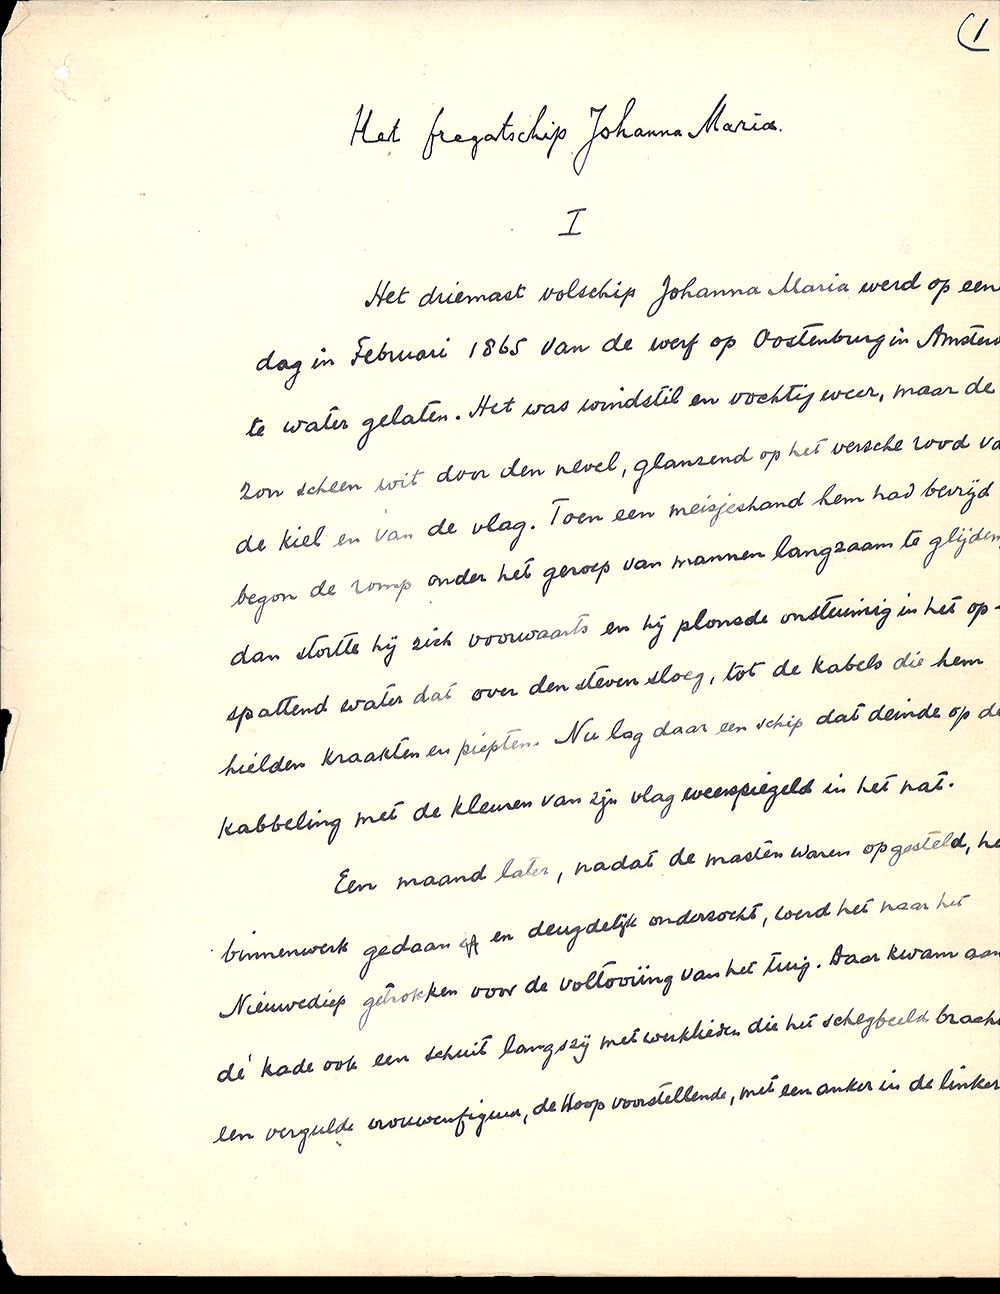 (1
Het fregatschip Johanna Maria.
I
Het driemast volschip Johanna Maria werd op een
dag in Februari 1865 van de werf op Oostenburg in Amsterd
te water gelaten. Het was windstil en vochtig weer, maar de
zon scheen wit door den nevel, glanzend op het versche rood va
de kiel en van de vlag. Toen een meisjeshand hem had bevrijd
begon de romp onder het geroep van mannen langzaam te glijden,
dan stortte hij zich voorwaarts en hij plonsde onstuimig in het op-
spattend water dat over den steven sloeg, tot de kabels die hem
hielden kraakten en piepten. Nu lag daar een schip dat deinde op de
kabbeling met de kleuren van zijn vlag weerspiegeld in het nat.
Een maand later, nadat de masten waren opgesteld, he
binnenwerk gedaan en deugdelijk onderzocht, werd het naar het
Nieuwediep getrokken voor de voltooiing van het tuig. Daar kwam aan
de kade ook een schuit langszij met werklieden die het schegbeeld brach
een vergulde vrouwenfiguur, de Hoop voorstellende, met een anker in de linker